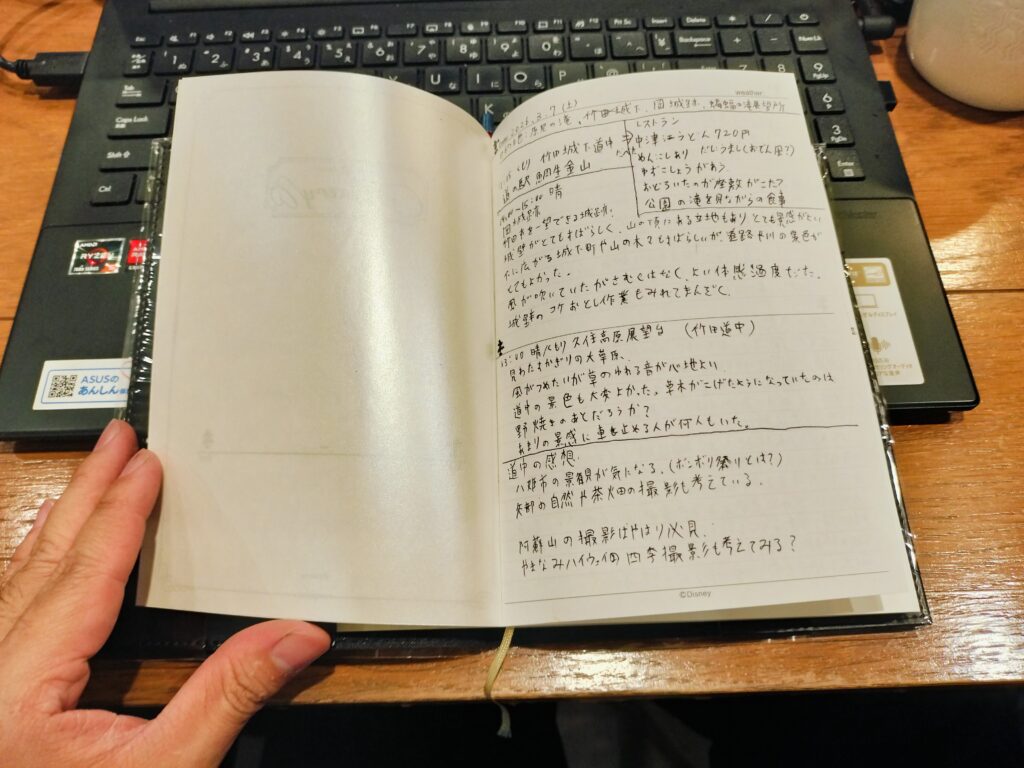 weather:
2026.3.7(土)
の滝、竹田城下、岡城跡、展望所
くもり 竹田城下道中
道の駅
レストラン
中津江うどん 720円
めんこしあり だしうまし(おでん風?)
ゆずこしょうがあう
おどろいたのが座敷がこたつ
公園の滝を見ながらの食事
14:00~15:00 晴
岡城跡
竹田市を一望できる城跡。
城壁がとてもすばらしく、山の頂にある立地もありとても景感がよい
下に広がる城下町や山の木々もすばらしいが、道路や川の景色が
とてもよかった。
風が吹いていたがさむくはなく、よい体感温度だった。
城壁のコケおとし作業もみれてまんぞく。
13:40 晴/くもり 久住高原展望台 (竹田道中)
見わたすかぎりの大草原、
風がつめたいが草のゆれる音が心地よい
道中の景色も大変よかった。草木がこげたようになっていたのは
野焼きのあとだろうか?
あまりの景感に車を止める人が何人もいた。
道中の感想、
八女市の景観が気になる。(ボンボリ祭りとは?)
矢部の自然や茶畑の撮影も考えている。
阿蘇山の撮影はやはり必見、
やまなみハイウェイの四季撮影も考えてみる?
©Disney
ASUSの
あんしん
AMD
RYZEN
Tab
Caps Lock
Shift
Ctrl
Esc
Backspace
Insert
Delete
Enter